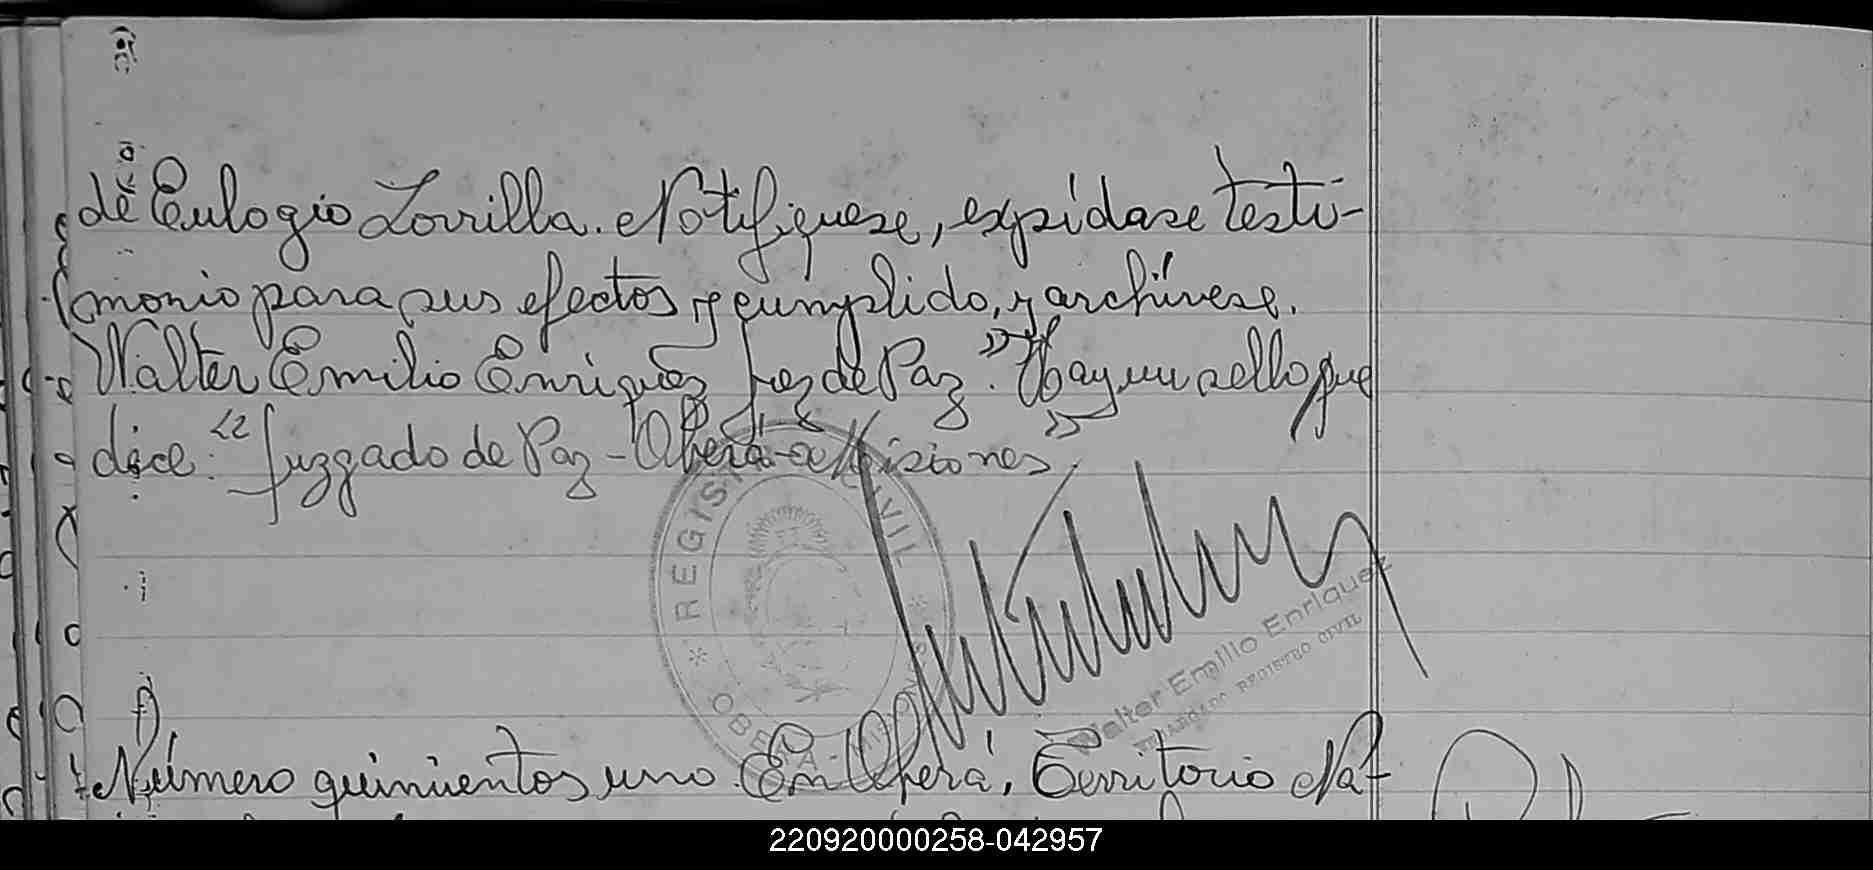 de Eulogio Zorrilla. Notifíquese, expídase testi-
monio para sus efectos y cumplido, archívese.
Walter Emilio Enriquez Juez de Paz." Hay un sello que
dice: "Juzgado de Paz - Oberá - Misiones"
REGISTRO CIVIL
OBERA - MISIONES
Walter Emilio Enriquez
ENCARGADO REGISTRO CIVIL
Número quinientos uno. En Oberá, Territorio Na-
220920000258-042957